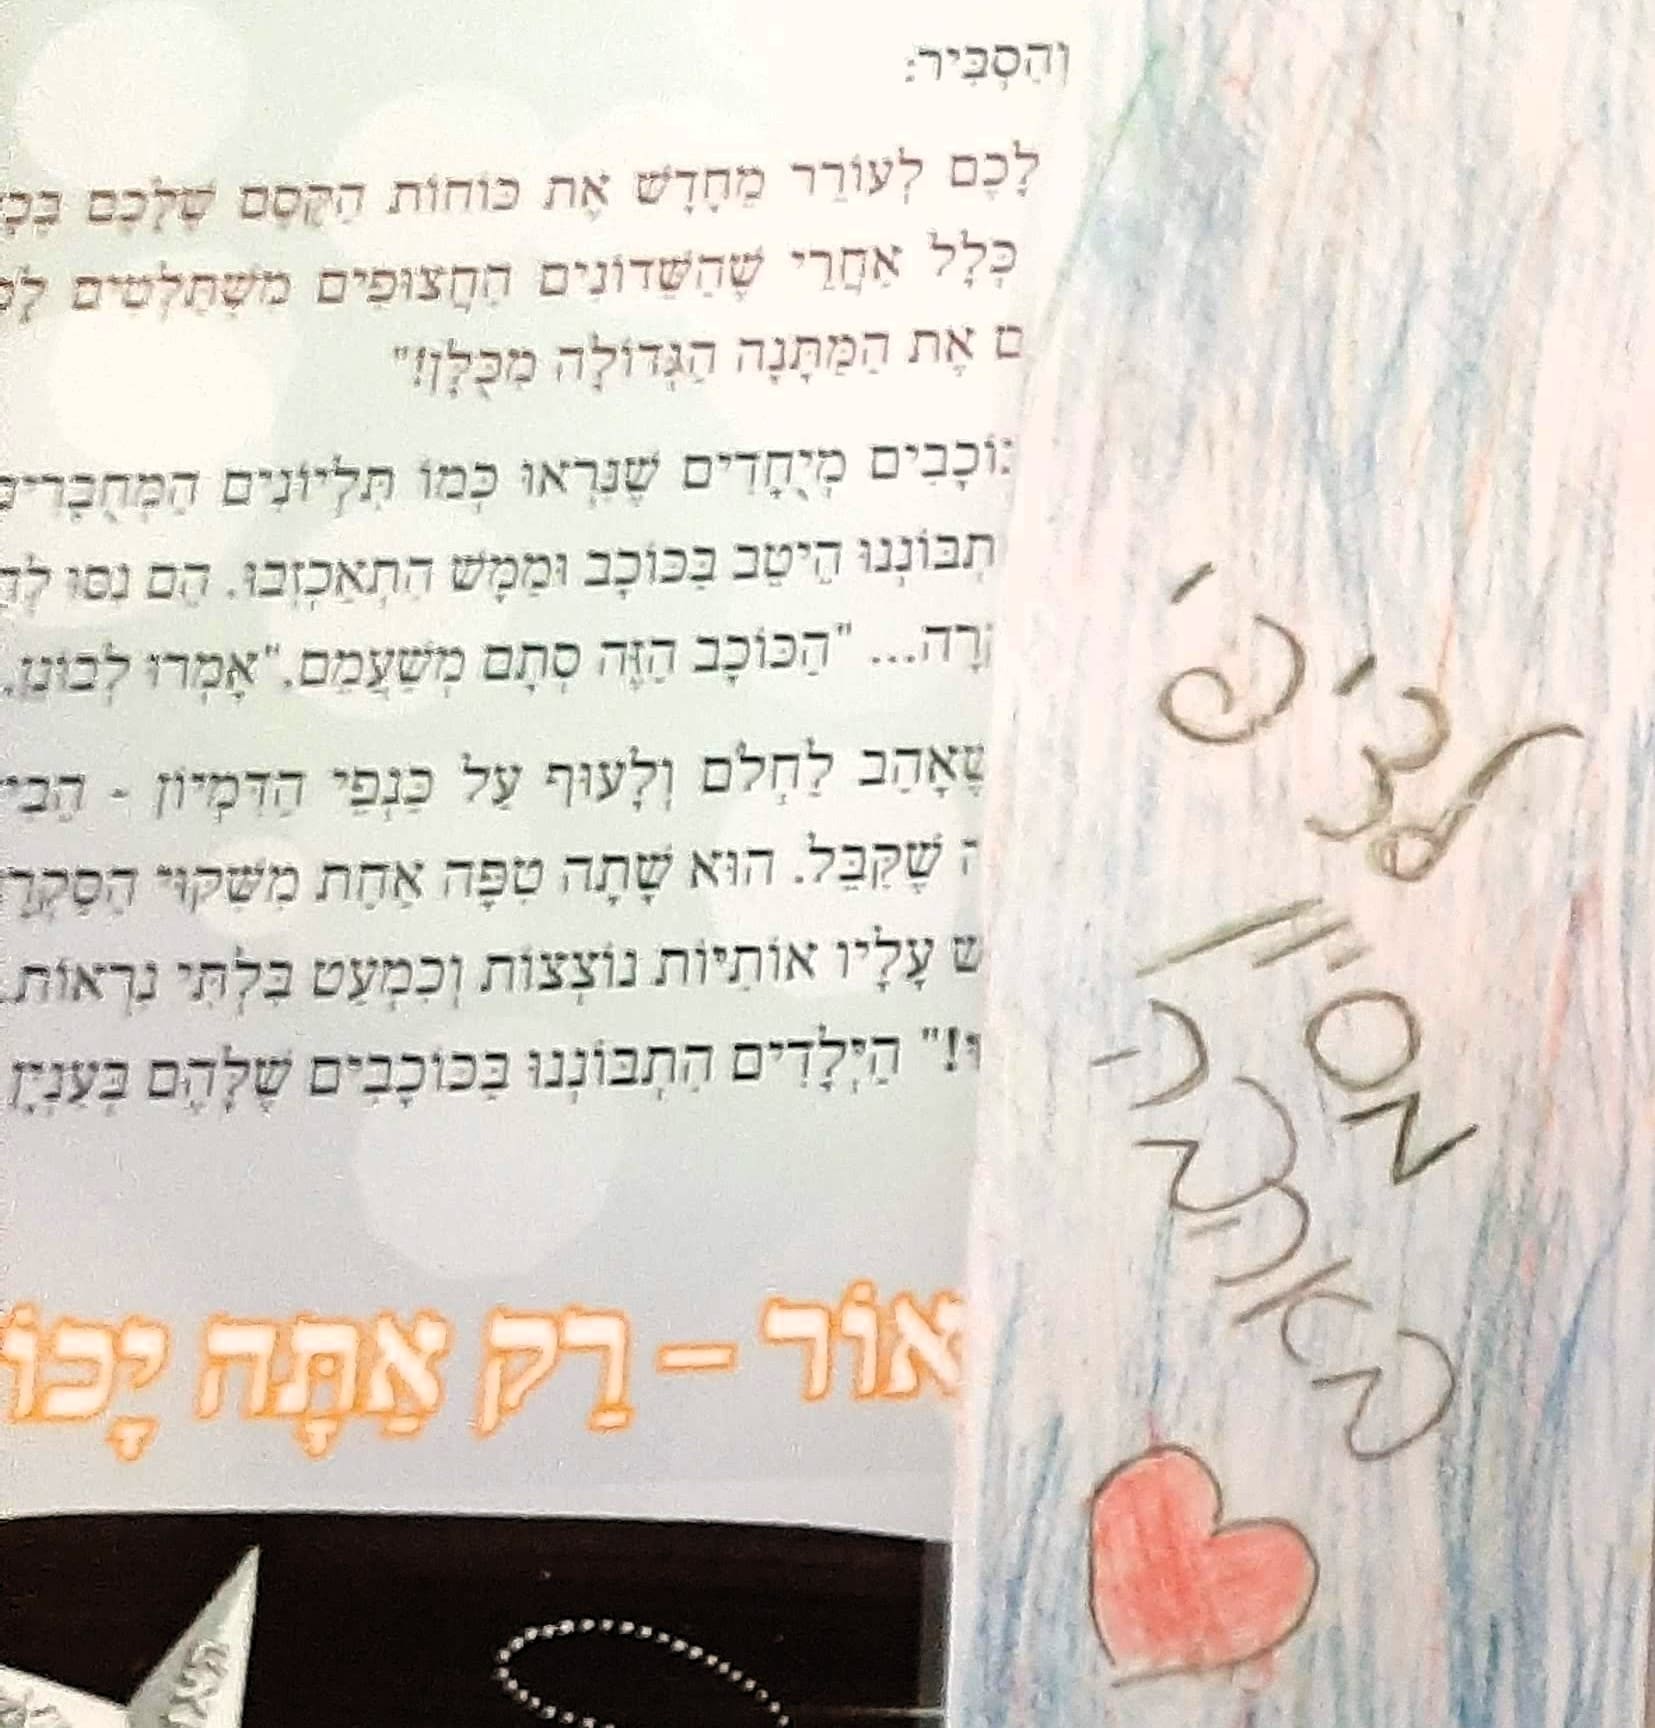 וְהִסְבִּיר:
לָכֶם לְעוֹרֵר מֵחָדָשׁ אֶת כּוֹחוֹת הַקֶּסֶם שֶׁלָּכֶם
כְּלָל אַחֲרֵי שֶׁהַשֵּׁדוֹנִים הַחֲצוּפִים מִשְׁתַּלְּטִים
ם אֶת הַמַּתָּנָה הַגְּדוֹלָה מִכֻּלָּן!"
וֹכָבִים מְיֻחָדִים שֶׁנִּרְאוּ כְּמוֹ תִּלְיוֹנִים הַמְּחֻבָּרִים
תְבּוֹנְנוּ הֵיטֵב בַּכּוֹכָב וּמַמָּשׁ הִתְאַכְזְבוּ. הֵם נִסּוּ
רָה... "הַכּוֹכָב הַזֶּה סְתָם מְשַׁעֲמֵם," אָמְרוּ
שֶׁאָהַב לַחֲלֹם וְלָעוּף עַל כַּנְפֵי הַדִּמְיוֹן - הֵבִי
ה שֶׁקִּבֵּל. הוּא שָׁתָה טִפָּה אַחַת מִשִּׁקּוּי הַסַּקְרָ
שׁ עָלָיו אוֹתִיּוֹת נוֹצְצוֹת וְכִמְעַט בִּלְתִּי נִרְאוֹת.
וּ!" הַיְּלָדִים הִתְבּוֹנְנוּ בַּכּוֹכָבִים שֶׁלָּהֶם בְּעִנְיָן
אוֹר – רַק אַתָּה יָכוֹ
לצ'פ'
מסיון
באהבה